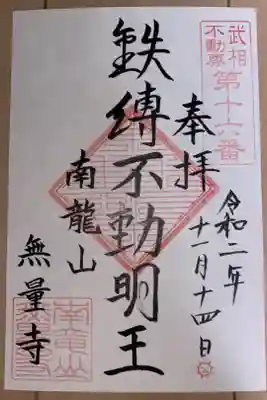 武相
不動尊
第十六番
奉拝
令和二年
十一月十四日
鉄縛不動明王
南龍山
無量寺